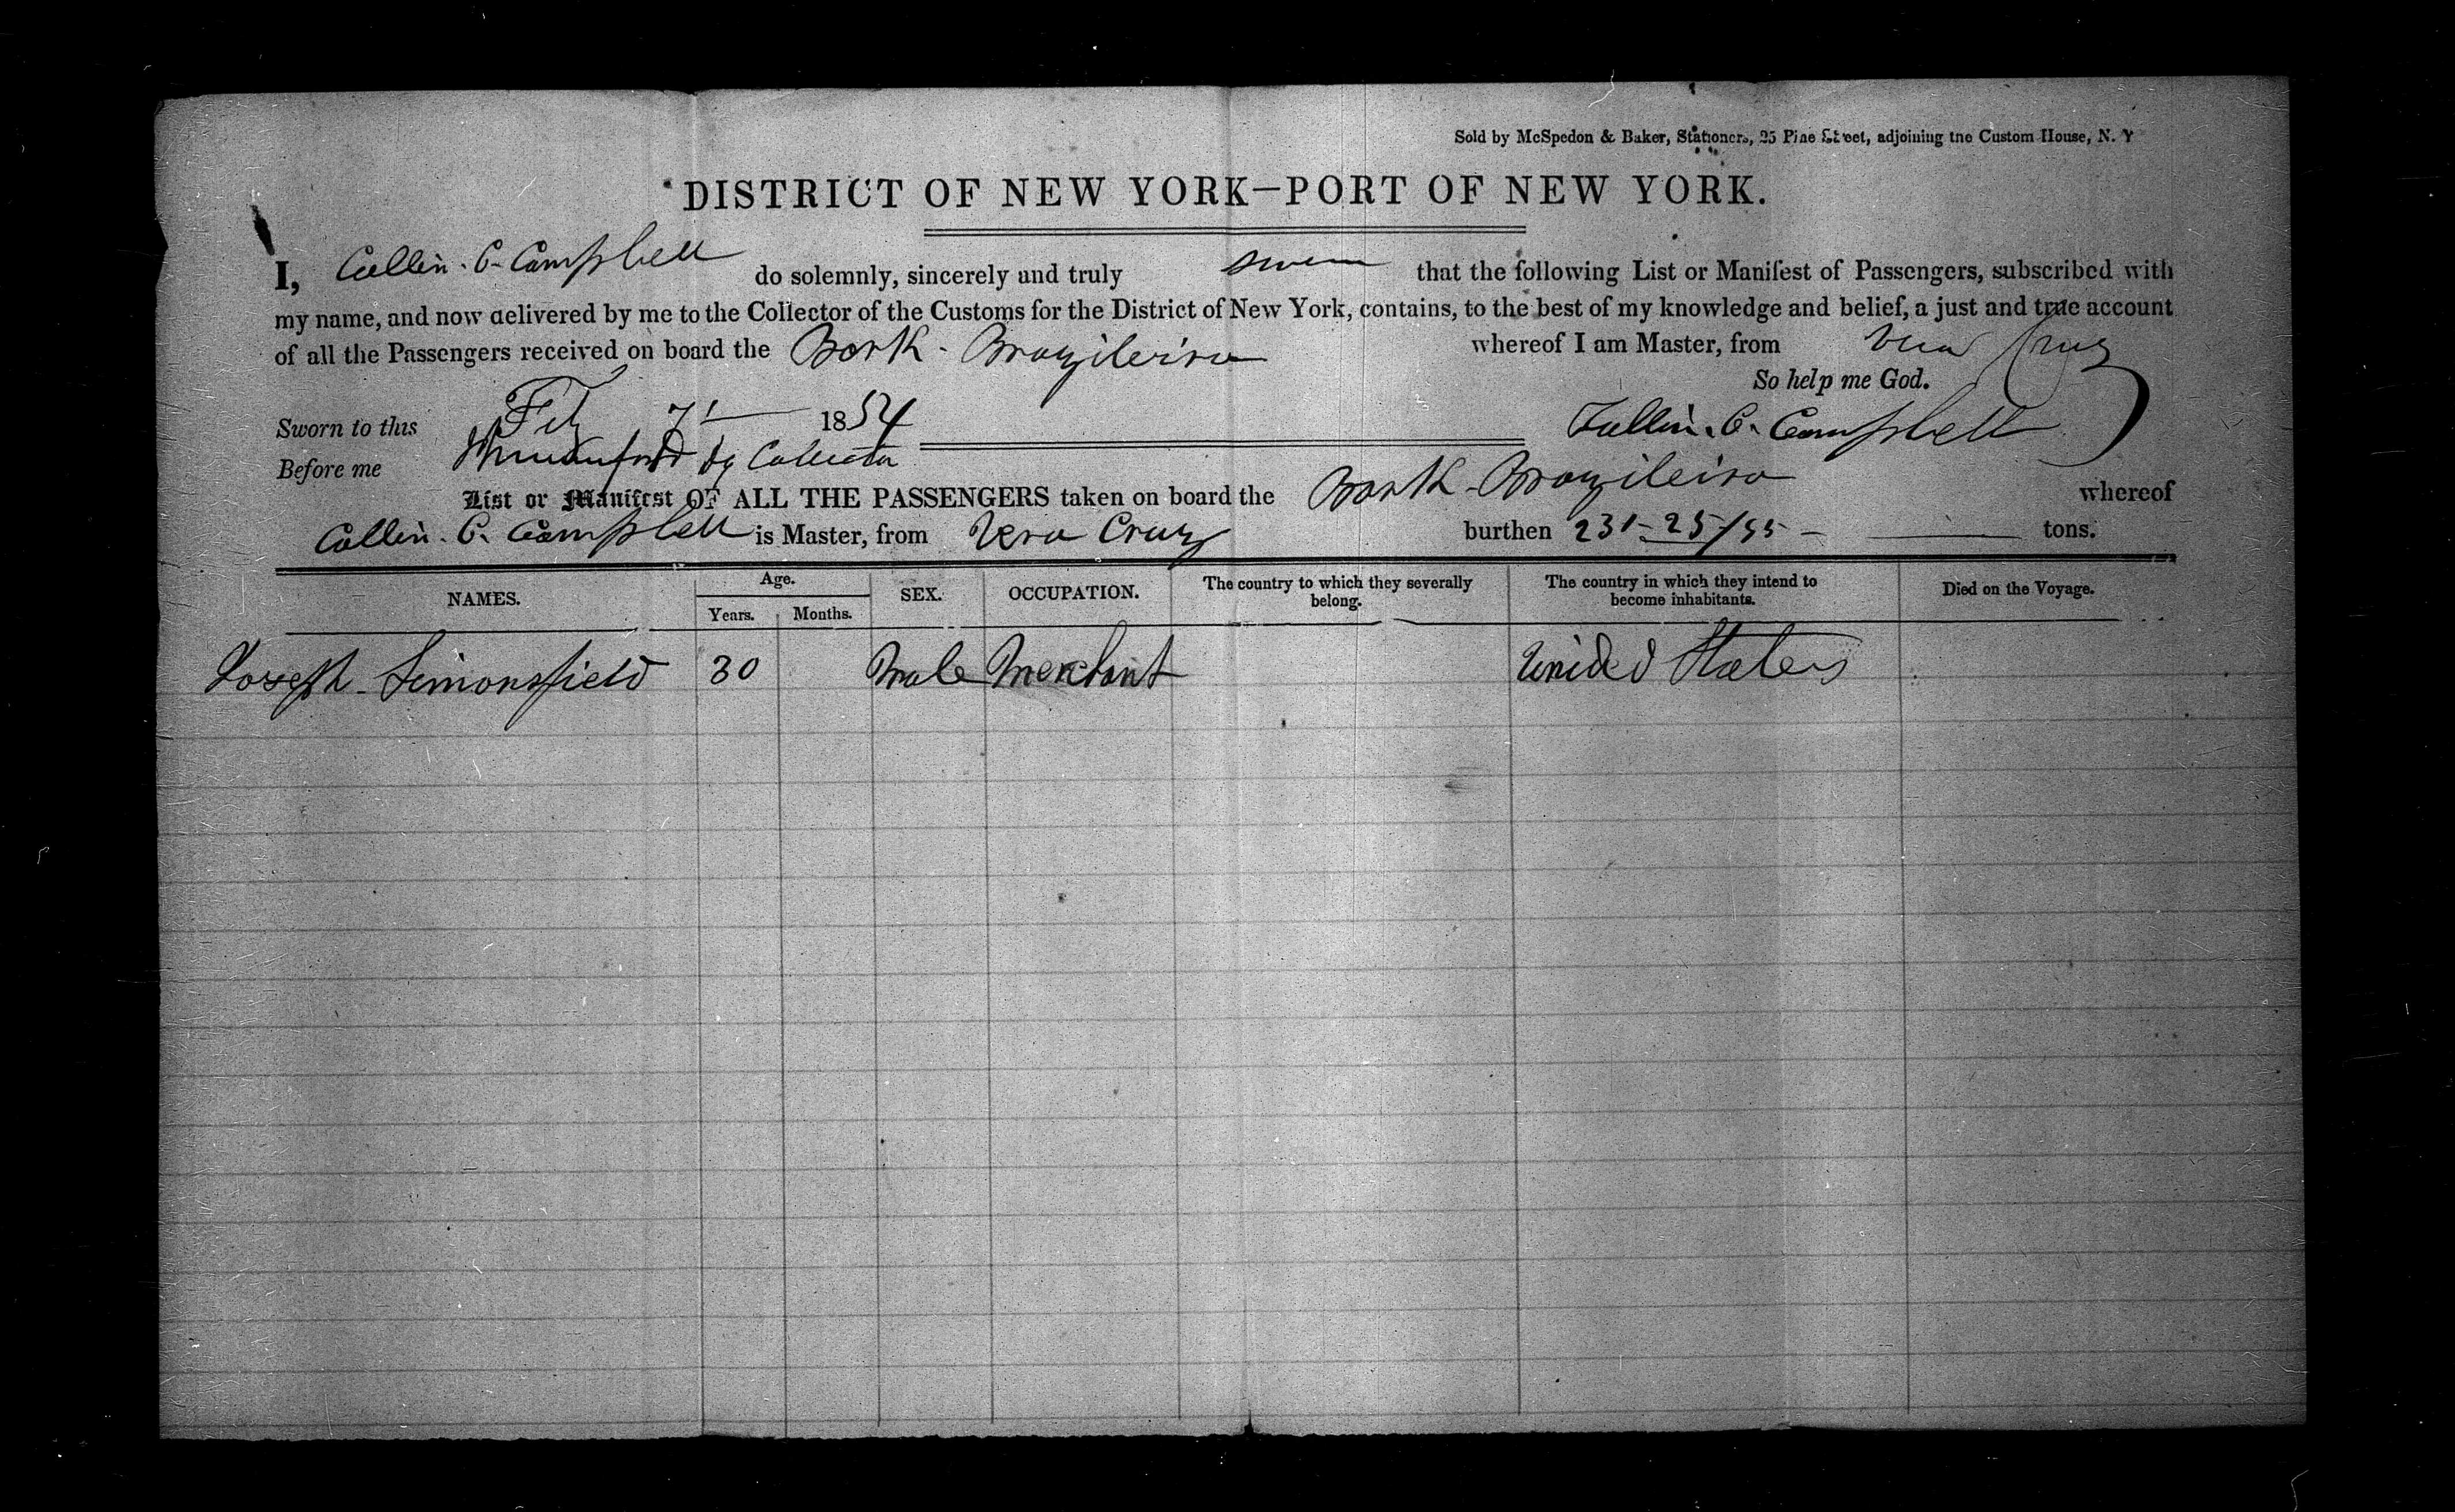 Sold by McSpedon & Baker, Stationers, 25 Pine Street, adjoining the Custom House, N. Y
DISTRICT OF NEW YORK—PORT OF NEW YORK.
I, Collin. C. Campbell do solemnly, sincerely and truly swear that the following List or Manifest of Passengers, subscribed with
my name, and now delivered by me to the Collector of the Customs for the District of New York, contains, to the best of my knowledge and belief, a just and true account
of all the Passengers received on board the Bark - Brazileiro whereof I am Master, from Vera Cruz
So help me God.
Sworn to this Feb 7 1854 Collin. C. Campbell
Before me Dy Collector
List or Manifest OF ALL THE PASSENGERS taken on board the Bark - Brazileiro whereof
Collin. C. Campbell is Master, from Vera Cruz burthen 231-25/95 tons.
NAMES. Age. SEX. OCCUPATION. The country to which they severally belong. The country in which they intend to become inhabitants. Died on the Voyage.
Years. Months.
Joseph Simonsfield 30 Male Merchant United States